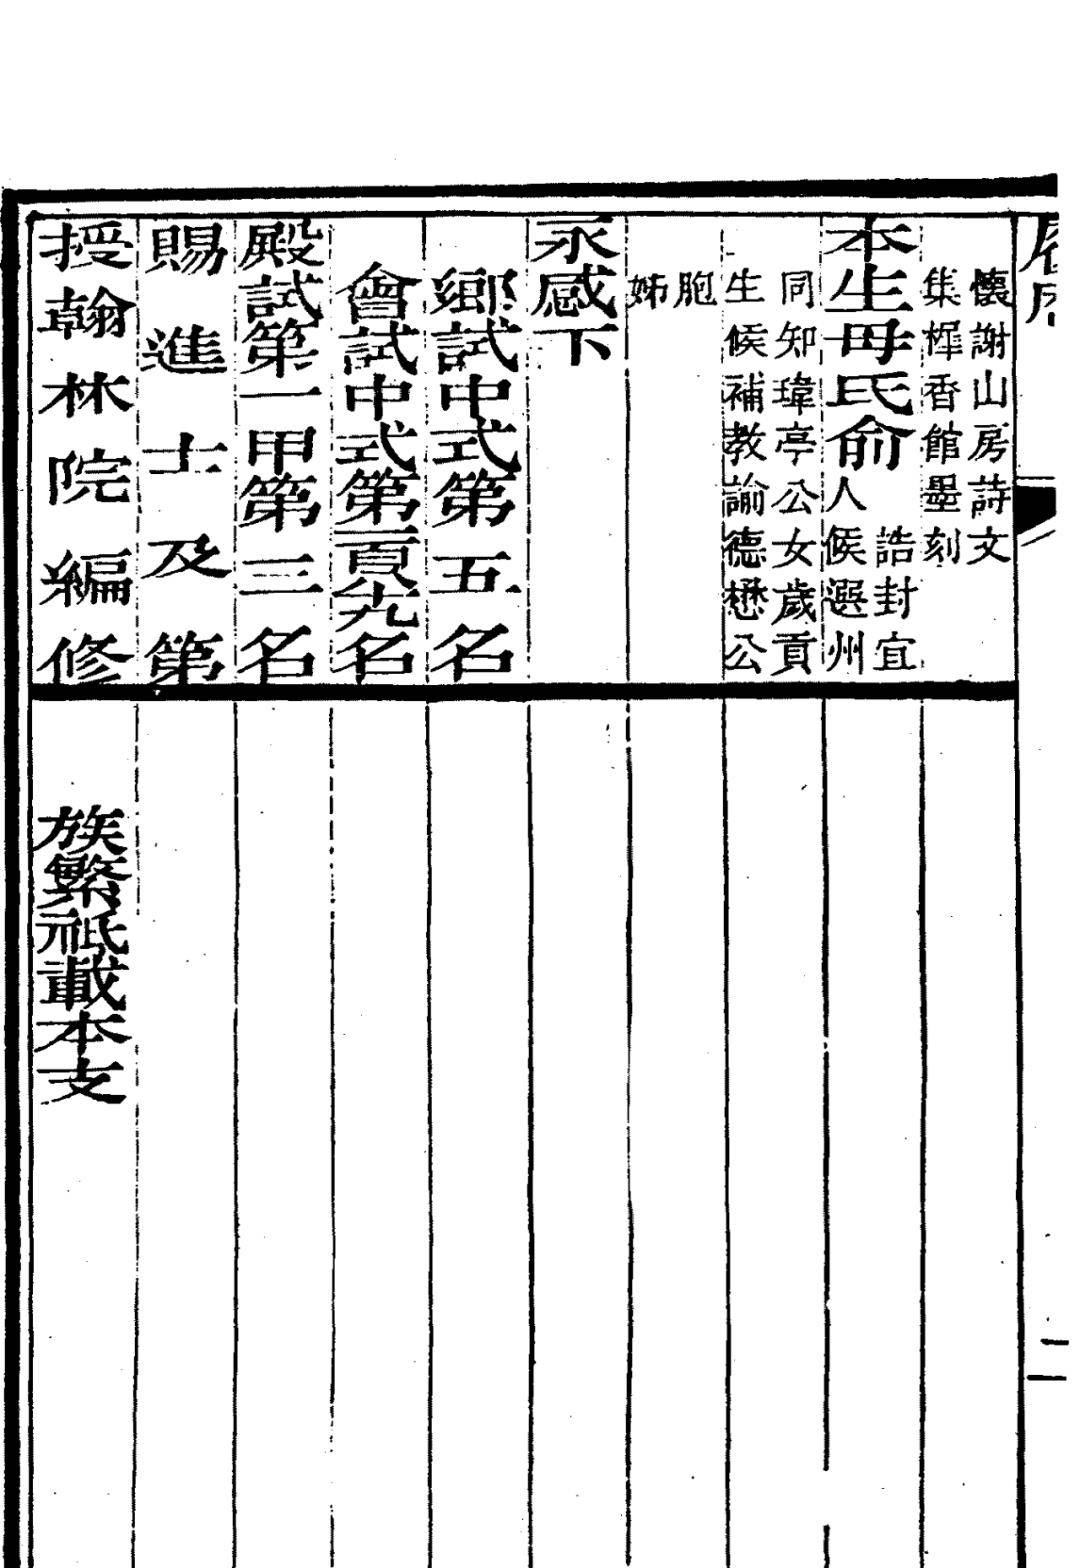 懷謝山房詩文
集樨香館墨刻
本生母氏俞
誥封宜
人候選州
同知瑋亭公女歲貢
生候補教諭德懋公
胞
姊
永感下
鄉試中式第五名
會試中式第一百九名
殿試第一甲第三名
賜進士及第
授翰林院編修
族繁祗載本支
二